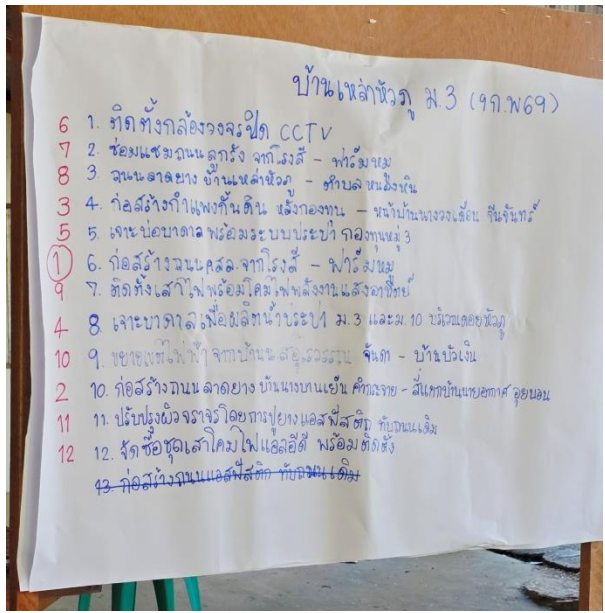 บ้านเหล่าหัวภู ม.3 (9ก.พ69)
6 1. ติดตั้งกล้องวงจรปิด CCTV
7 2. ซ่อมแซมถนนลูกรัง จากโรงสี - ฟาร์มหมู
8 3. ถนนลาดยาง บ้านเหล่าหัวภู - ตำบลหนองหิน
3 4. ก่อสร้างกำแพงกั้นดิน หลังกองทุน - หน้าบ้านนางวงเดือน จีนจันทร์
5 5. เจาะบ่อบาดาลพร้อมระบบประปา กองทุนหมู่ 3
1 6. ก่อสร้างถนนคสล. จากโรงสี - ฟาร์มหมู
9 7. ติดตั้งเสาไฟพร้อมโคมไฟพลังงานแสงอาทิตย์
4 8. เจาะบาดาลเพื่อผลิตน้ำประปา ม.3 และม.10 บริเวณดอยหัวภู
10 9. ขยายเขตไฟฟ้า จากบ้าน จันดา - บ้านบัวเงิน
2 10. ก่อสร้างถนนลาดยาง บ้านนางบานเย็น - สี่แยกบ้านนายอากาศ อุยบอน
11 11. ปรับปรุงผิวจราจรโดยการปูยางแอสฟัสติก ทับถนนเดิม
12 12. จัดซื้อชุดเสาโคมไฟแอลอีดี พร้อมติดตั้ง
13. ก่อสร้างถนนแอสฟัสติก ทับถนนเดิม